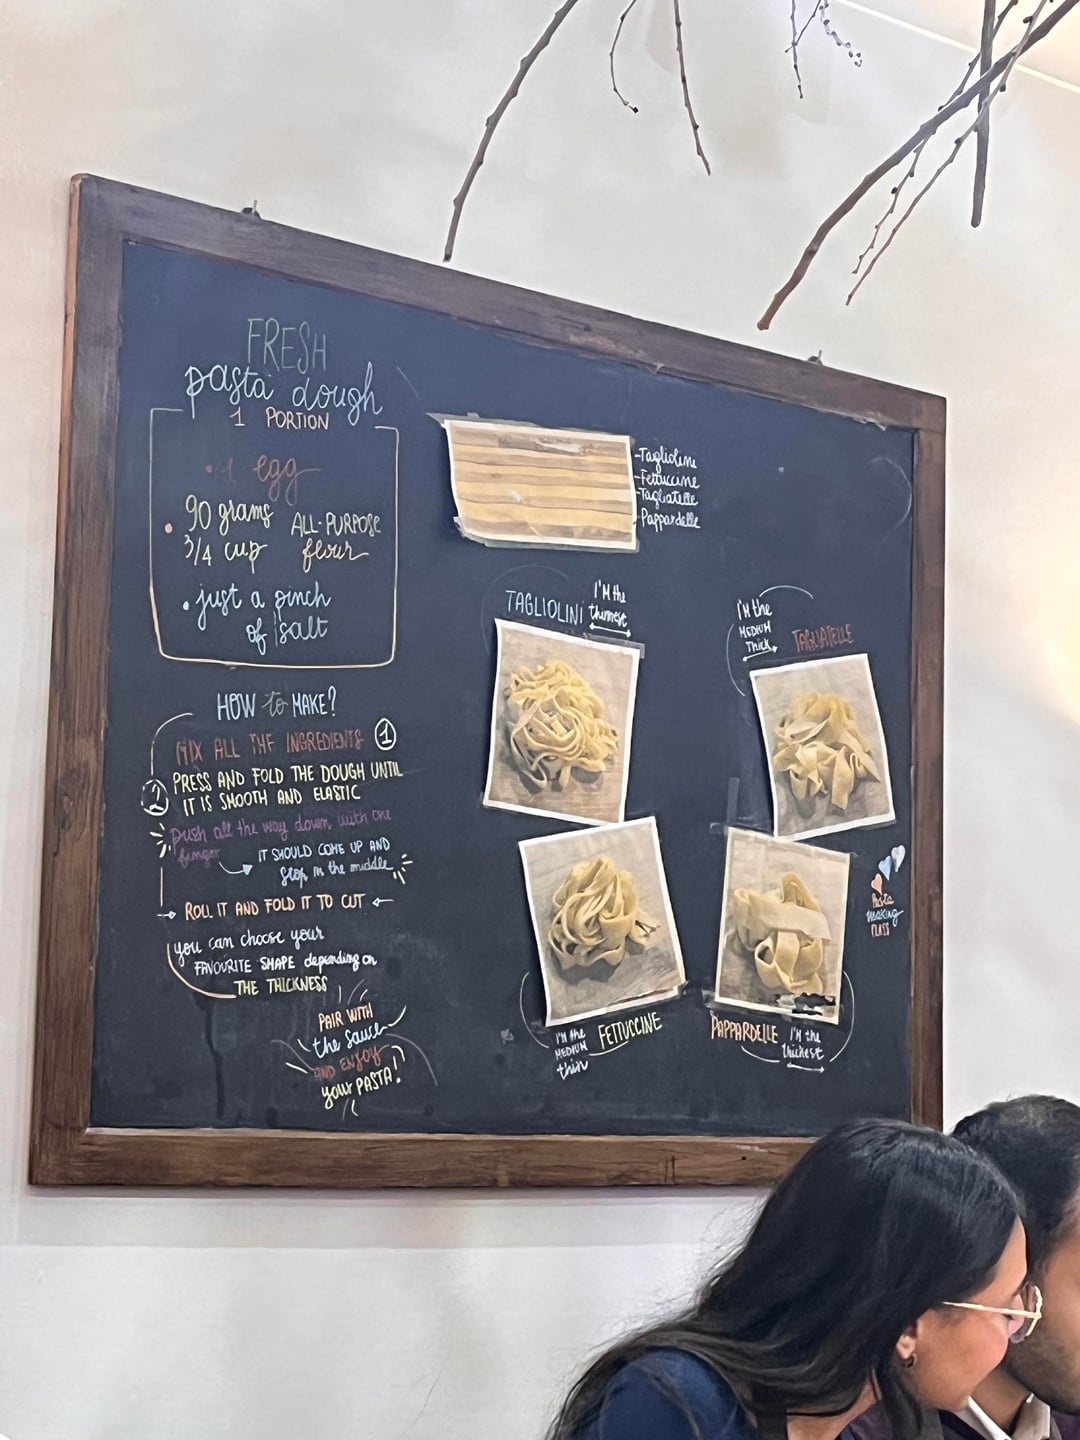 FRESH
pasta dough
1 PORTION
• 1 egg
• 90 grams
3/4 cup
ALL-PURPOSE
flour
• just a pinch
of salt
HOW to MAKE?
MIX ALL THE INGREDIENTS 1
2 PRESS AND FOLD THE DOUGH UNTIL
IT IS SMOOTH AND ELASTIC
push all the way down with one
finger
IT SHOULD COME UP AND
stop in the middle
ROLL IT AND FOLD IT TO CUT
you can choose your
FAVOURITE SHAPE depending on
THE THICKNESS
PAIR WITH
the sauce
AND ENJOY
your PASTA!
-Tagliolini
-Fettuccine
-Tagliatelle
-Pappardelle
TAGLIOLINI
I'M the
thinnest
I'M the
MEDIUM
Thick
TAGLIATELLE
I'M the
MEDIUM
thin
FETTUCCINE
PAPPARDELLE
I'M the
thickest
Pasta
making
CLASS